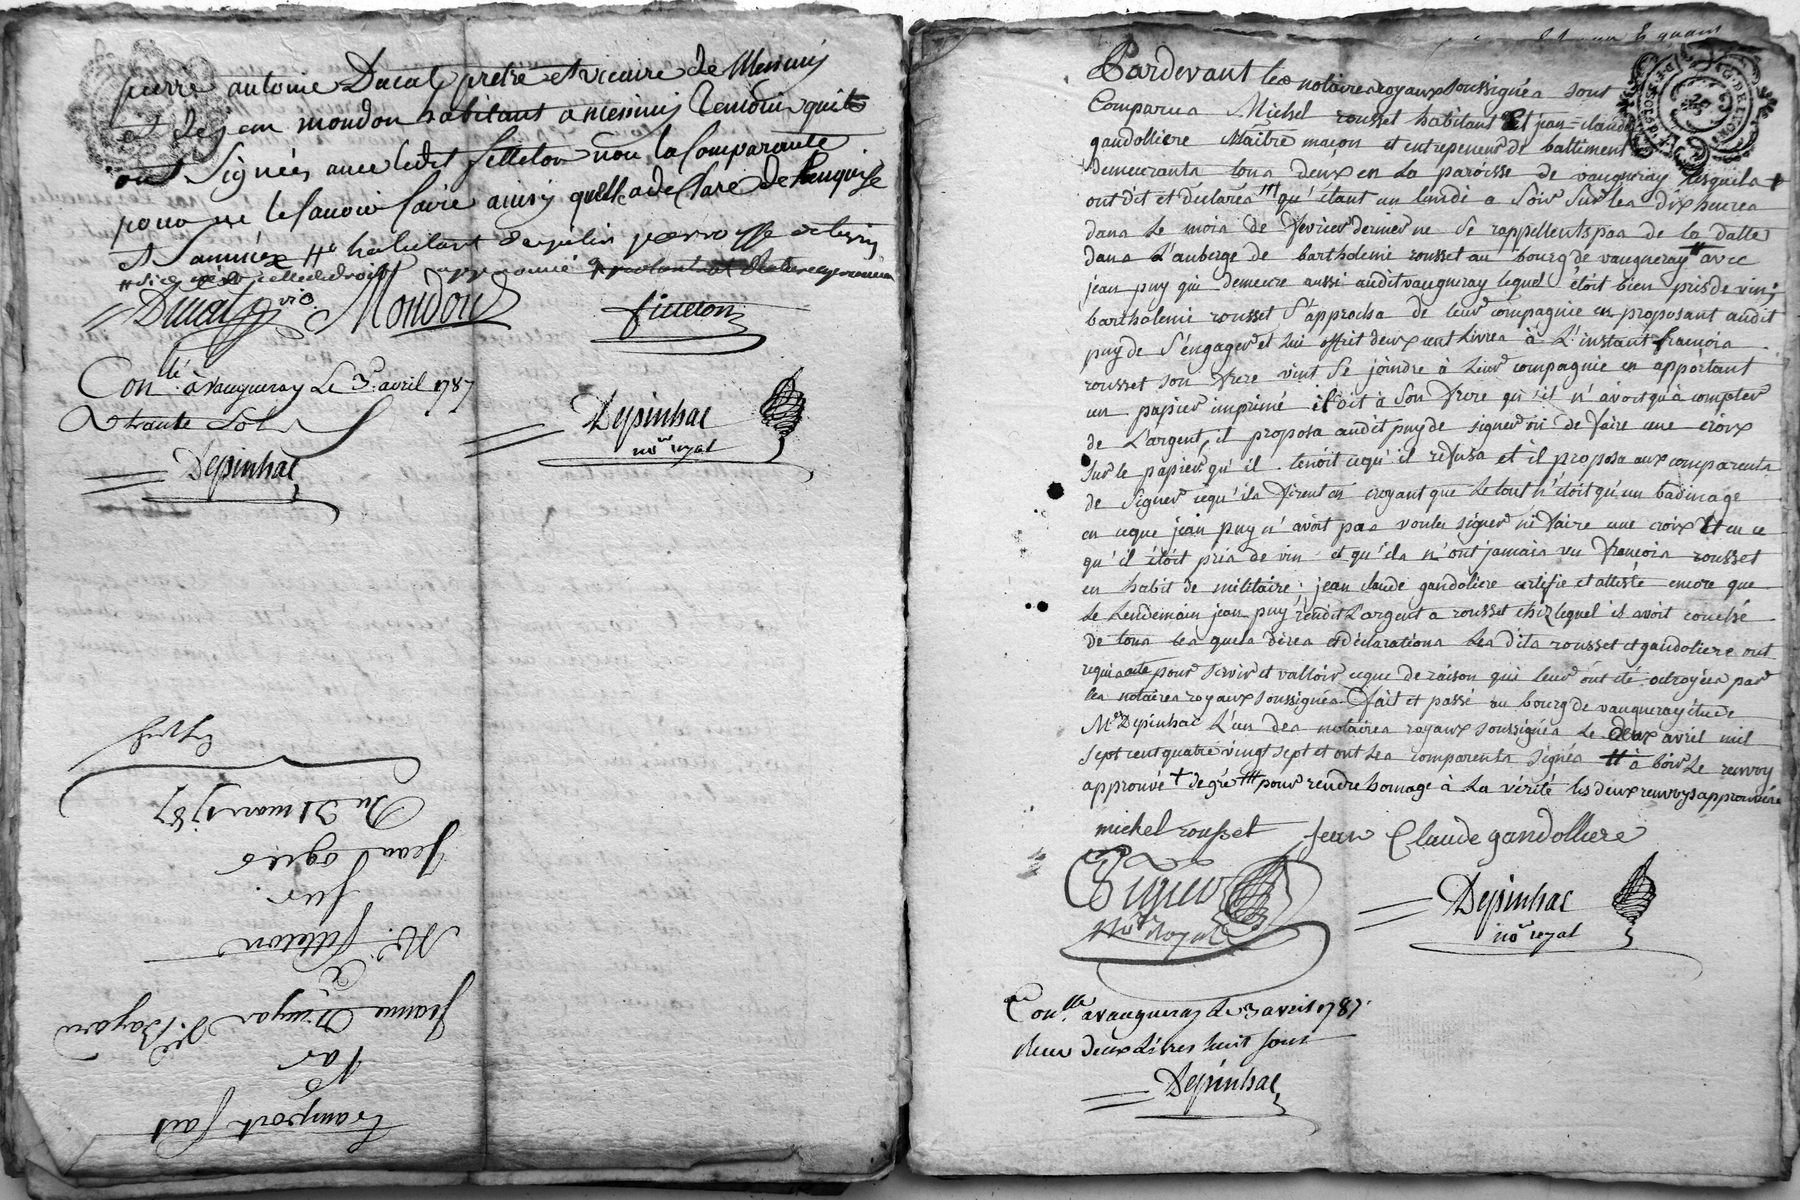 pierre antoine Ducat pretre et vicaire de Messimy
et de jean mondon habitant a messimy temoins qui
ont Signés avec ledit filleton non la Comparante
pour ne le savoir faire ainsy quelle a declaré de Requise
et sommée # habitant
Ducat vic. Mondon filleton
Con.lé à vaugneray Le 3 avril 1787
trante sols
Depinhac
Depinhac
no.re royal
transport fait
Par
Jeanne V.e Bazard
à
M.e filleton
Sur
Jean
Du 31 mars 1787
Pardevant les notaires royaux soussignés sont
Comparus Michel rousset habitant Et jean = claude
gandolliere Maître maçon et entrepeneur de battiment
demeurants tous deux en la paroisse de vaugneray lesquels +
ont dit et declarés ## qu'étant un lundi a Soir Sur les dix heures
dans le mois de fevrier dernier ne Se rappellents pas de la datte
dans L'auberge de bartholemi rousset au bourg de vaugneray # avec
jean puy qui demeure aussi audit vaugneray lequel étoit bien pris de vin;
bartholemi rousset S'approcha de leur compagnie en proposant audit
puy de S'engager et lui offrit deux cent livres à L'instant francois
rousset son frere vint Se joindre à leur compagnie en apportant
un papier imprimé il dit à Son frere qu'il n'avoit qu'à compter
de L'argent, il proposa audit puy de signer ou de faire une croix
Sur le papier qu'il tenoit cequ'il refusa et il proposa aux comparents
de Signer cequ'ils firent en croyant que Le tout n'étoit qu'un badinage
en ceque jean puy n'avoit pas voulu signer ni faire une croix Et en ce
qu'il étoit pris de vin et qu'ils n'ont jamais vu francois rousset
en habit de militaire; jean claude gandoliere certifie et atteste encore que
Le Lendemain jean puy rendit L'argent a rousset chez lequel il avoit couché
de tous les quels dires et déclarations Les dits rousset et gandoliere ont
requis acte pour servir et valloir ceque de raison qui leur ont été octroyés par
les notaires royaux soussignés fait et passé au bourg de vaugneray étude
M.e Depinhac L'un des notaires royaux soussignés Le deux avril mil
sept cent quatre vingt sept et ont Les comparents signés ## à boir Le renvoy
approuvé + de gré ## pour rendre homage à La vérité les deux renvoys approuvés
michel rousset jean Claude gandolliere
no.re Royal
Depinhac
no.re royal
Con.llé a vaugneray le 3 avril 1787
Reçu deux Livres huit sous
Depinhac